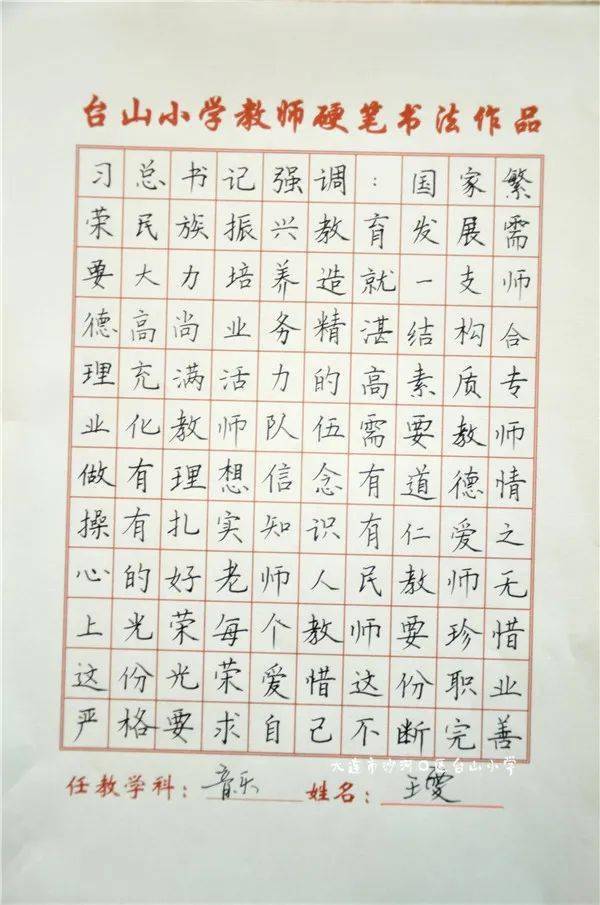 台山小学教师硬笔书法作品
习总书记强调：国家繁
荣民族振兴教育发展需
要大力培养造就一支师
德高尚业务精湛结构合
理充满活力的高素质专
业化教师队伍需要教师
做有理想信念有道德情
操有扎实知识有仁爱之
心的好老师人民教师无
上光荣每个教师要珍惜
这份光荣爱惜这份职业
严格要求自己不断完善
大连市沙河口区台山小学
任教学科：音乐 姓名：王爱